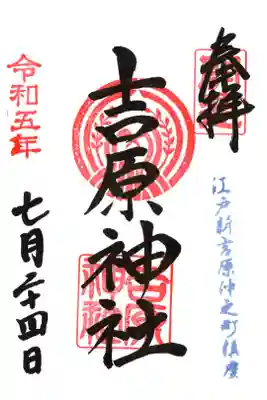 奉拝
江戸新吉原仲之町鎮座
吉原神社
吉原神社
令和五年
七月二十四日